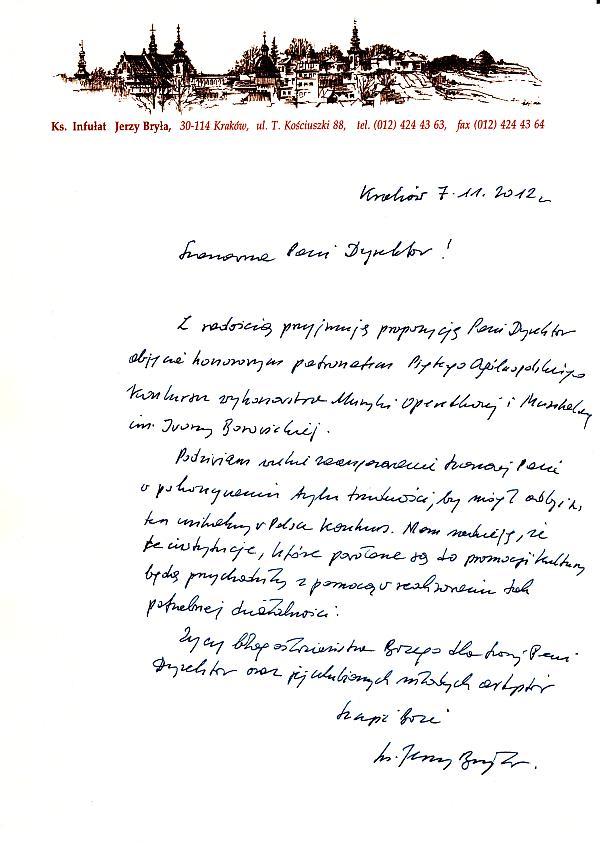 Ks. Infułat Jerzy Bryła, 30-114 Kraków, ul. T. Kościuszki 88, tel. (012) 424 43 63, fax (012) 424 43 64
Kraków 7.11.2012 r.
Szanowna Pani Dyrektor!
Z radością przyjmuję propozycję Pani Dyrektor
objęcia honorowym patronatem Piątego Ogólnopolskiego
Konkursu wykonawstwa Muzyki Operetkowej i Musicalowej
im. Iwony Borowickiej.
Podziwiam wielkie zaangażowanie Szanownej Pani
w pokonywaniu tylu trudności, by mógł odbyć się
ten unikalny w Polsce Konkurs. Mam nadzieję, że
te instytucje, które powołane są do promocji Kultury
będą przychodziły z pomocą w realizowaniu tak
potrzebnej działalności.
Życzę błogosławieństwa Bożego dla Pani
Dyrektor oraz jej ulubionych młodych artystów
Szczęść Boże
ks. Jerzy Bryła.